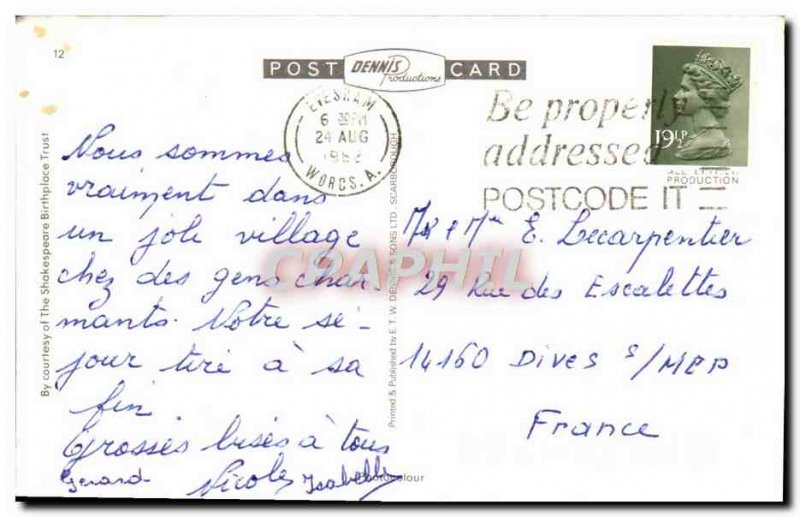 12
POST DENNIS Productions CARD
EVESHAM
6 30PM
24 AUG
1982
WORCS. A.
Be properly
addressed
POSTCODE IT
19½P
PRODUCTION
By courtesy of The Shakespeare Birthplace Trust
Nous sommes
vraiment dans
un joli village
chez des gens char-
mants. Notre sé-
jour tire à sa
fin.
Grosses bises à tous
Gérard Nicole Isabelle
Printed & Published by E.T.W. DENNIS & SONS LTD., SCARBOROUGH
CPAPHIL
Mr & Mme E. Lecarpentier
29 Rue des Escalettes
14160 DIVES S/MER
France